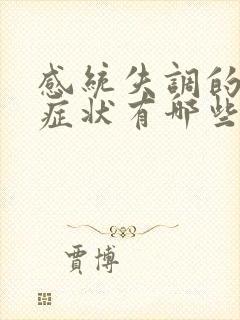 感統失調的
症狀有哪些
賈博